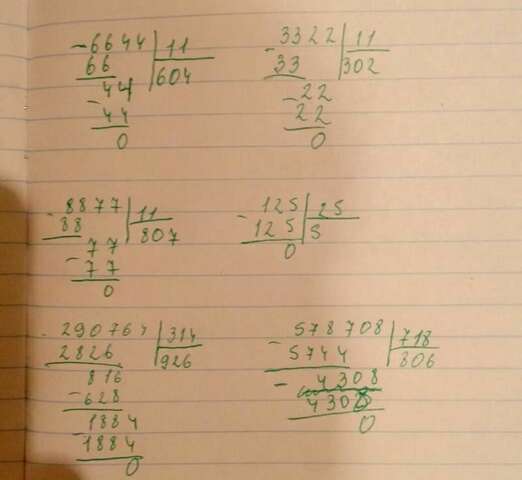 -6644 11
66 604
44
-44
0
-3322 11
33 302
-22
22
0
-8877 11
88 807
-77
77
0
-125 25
125 5
0
-290764 314
2826 926
816
-628
1884
-1884
0
-578708 718
5744 806
-4308
4308
0